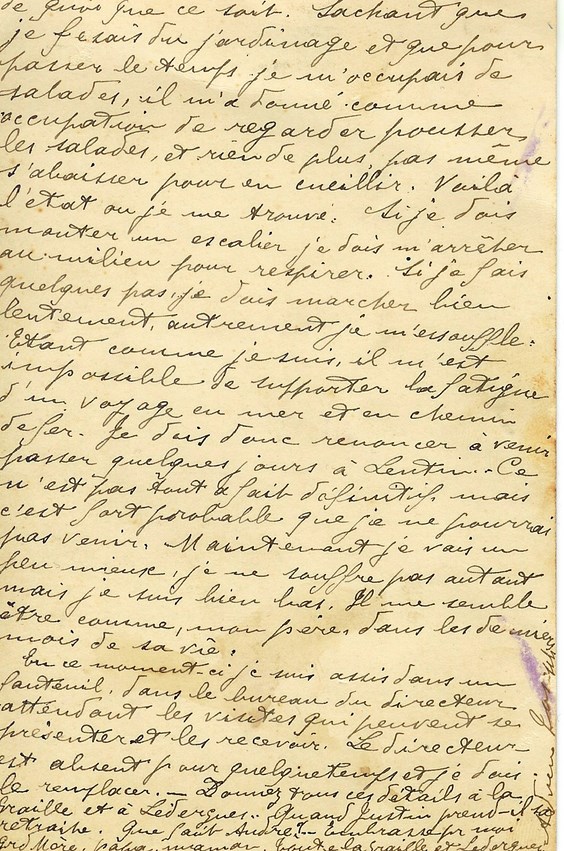 de quoi que ce soit. Sachant que
je fesais du jardinage et que pour
passer le temps je m'occupais de
salades, il m'a donné comme
occupation de regarder pousser
les salades, et rien de plus, pas même
s'abaisser pour en cueillir. Voilà
l'état ou je me trouve. Si je dois
monter un escalier je dois m'arrêter
au milieu pour respirer. Si je fais
quelques pas, je dois marcher bien
lentement, autrement je m'essouffle.
Etant comme je suis, il m'est
impossible de supporter la fatigue
d'un voyage en mer et en chemin
de fer. Je dois donc renoncer à venir
passer quelques jours à Lentin. Ce
n'est pas tout à fait définitif, mais
c'est fort probable que je ne pourrai
pas venir. Maintenant je vais un
peu mieux, je ne souffre pas autant
mais je suis bien bas. Il me semble
être comme, mon père, dans les derniers
mois de sa vie.
En ce moment-ci je suis assis dans un
fauteuil, dans le bureau du directeur
attendant les visites qui peuvent se
présenter et les recevoir. Le directeur
est absent pour quelque temps et je dois
le remplacer. — Donnez tous ces détails à la
Graille et à Ledergues. Quand Justin prend-il sa
retraite. Que fait André? — Embrasse pr moi
grd Mère, papa, maman, toute la Graille et Ledergues